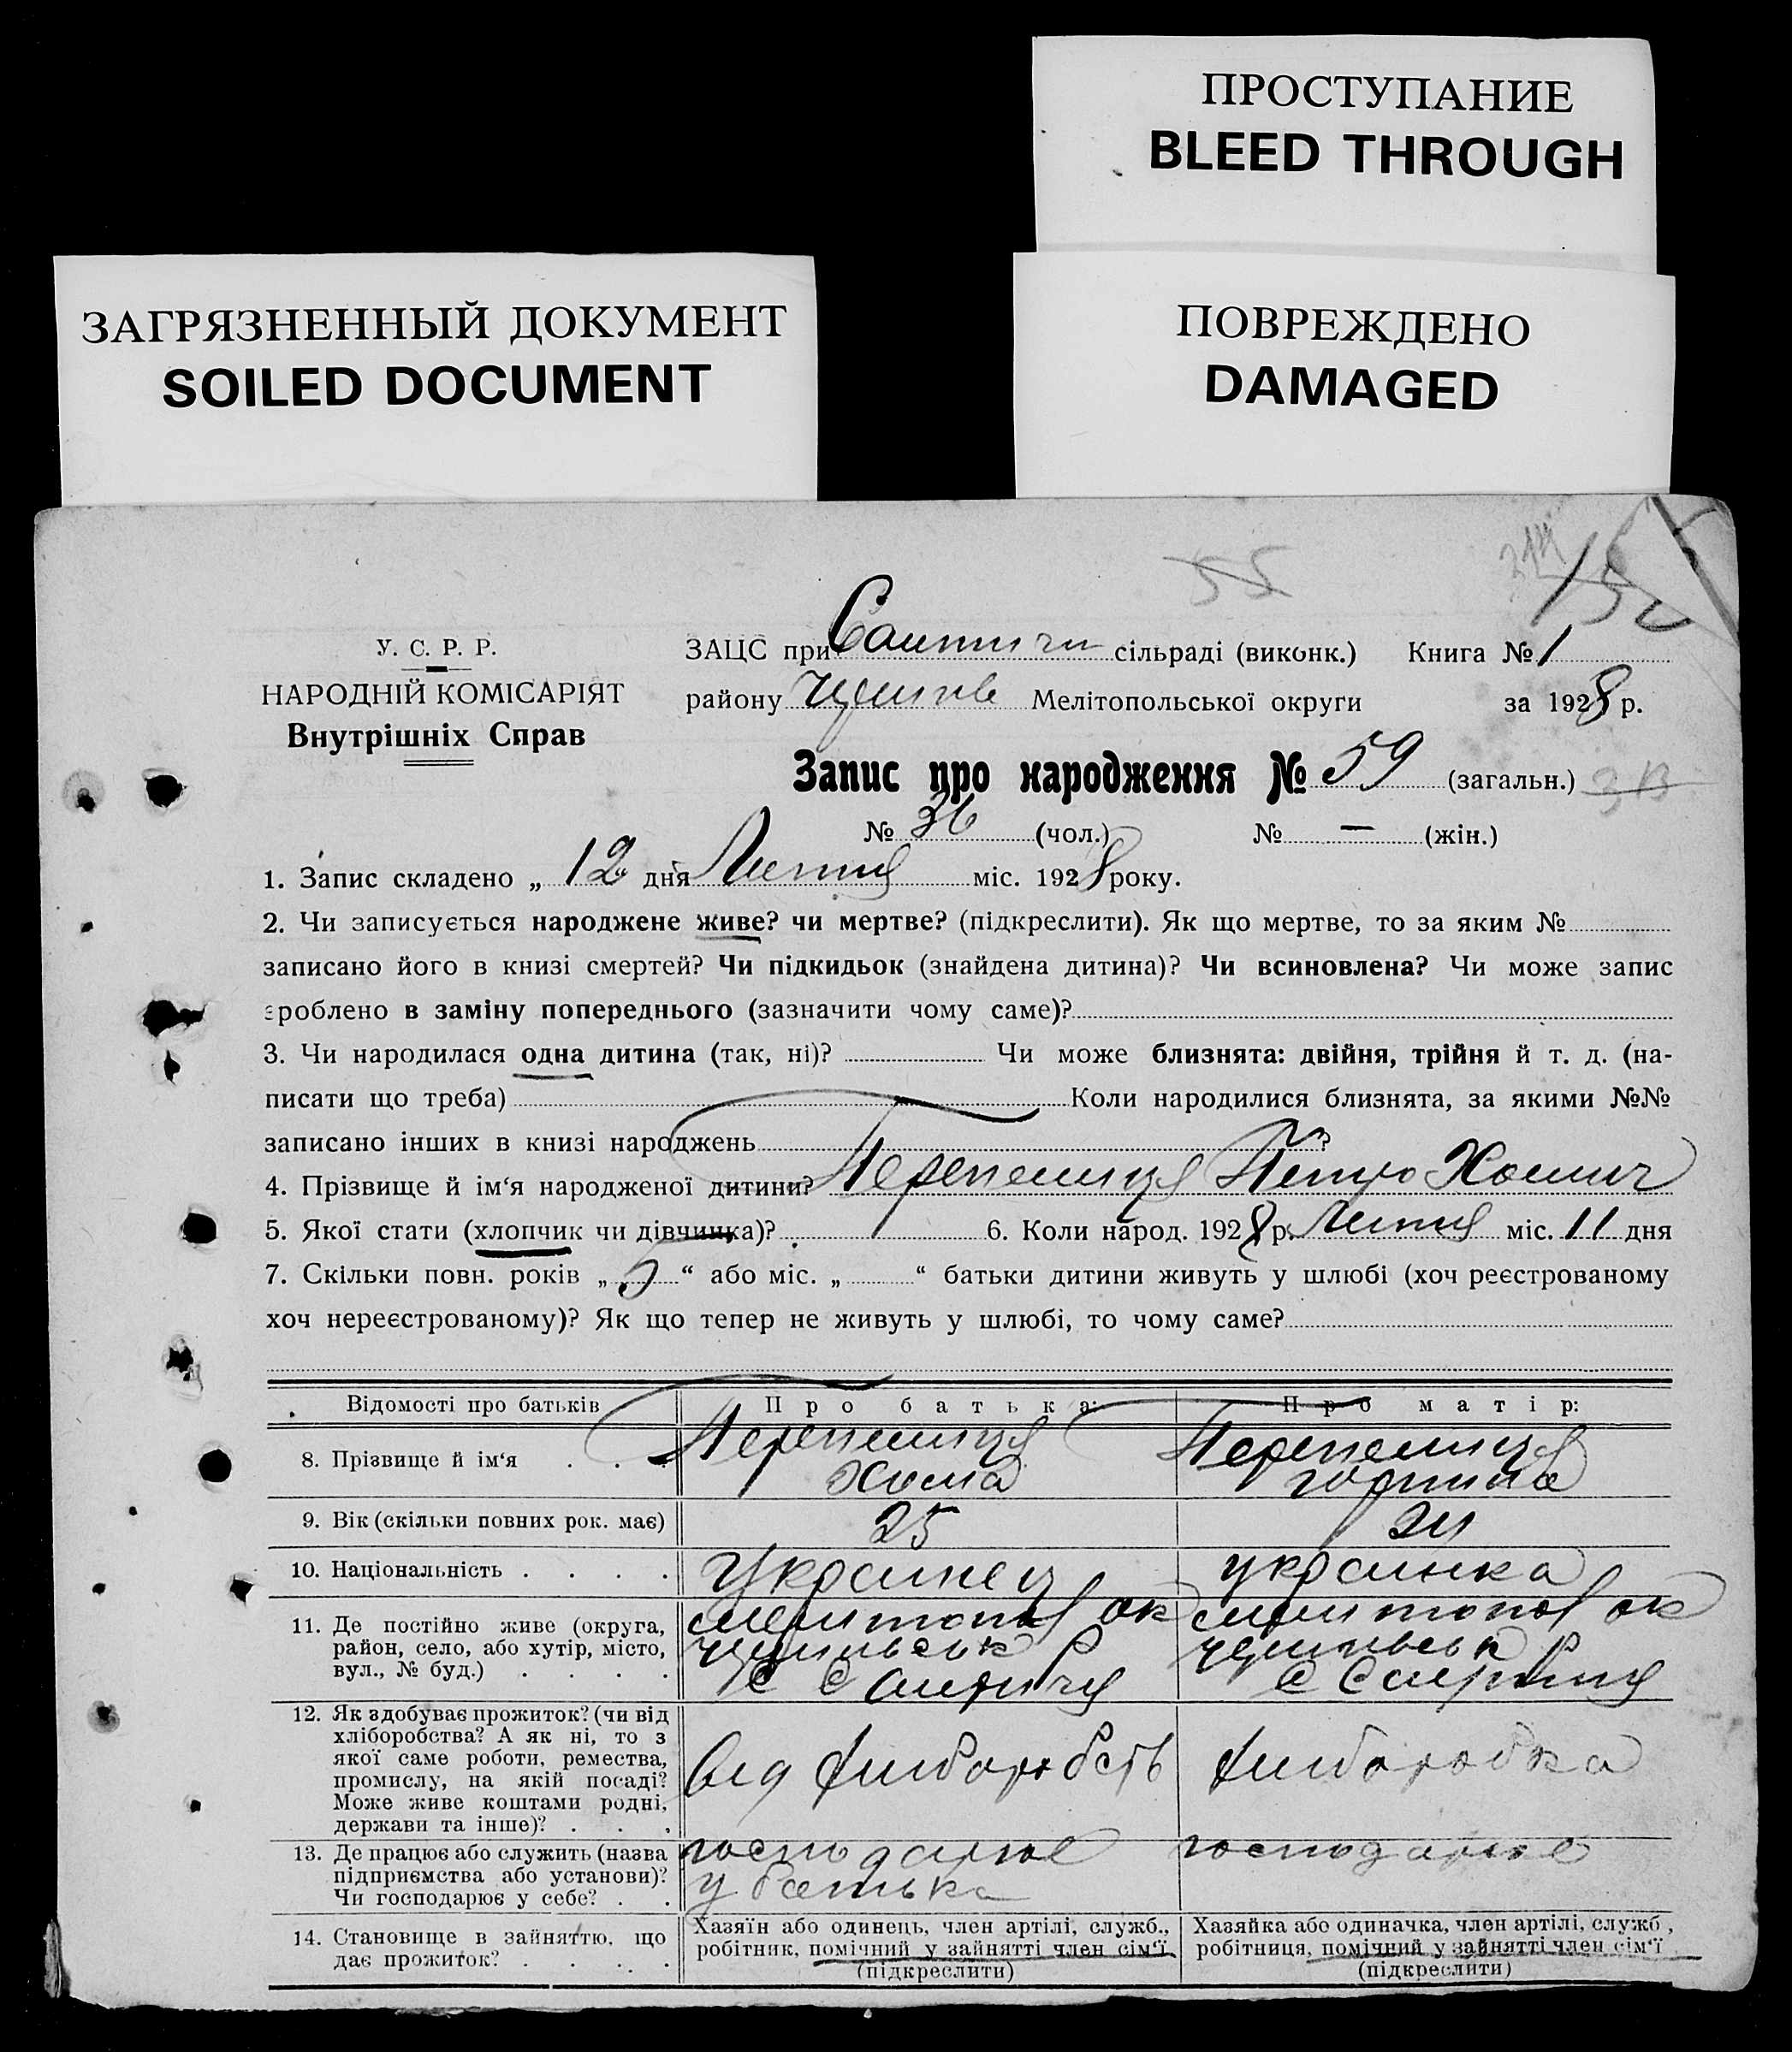 ПРОСТУПАНИЕ
BLEED THROUGH
ЗАГРЯЗНЕННЫЙ ДОКУМЕНТ
SOILED DOCUMENT
ПОВРЕЖДЕНО
DAMAGED
55
У. С. Р. Р.
НАРОДНІЙ КОМІСАРІЯТ
Внутрішніх Справ
ЗАЦС при сільраді (виконк.) Книга № 1
району Мелітопольської округи за 1928 р.
Запис про народження № 59 (загальн.)
№ 36 (чол.) № — (жін.)
1. Запис складено „ 12 дня Липня міс. 1928 року.
2. Чи записується народжене живе? чи мертве? (підкреслити). Як що мертве, то за яким №
записано його в книзі смертей? Чи підкидьок (знайдена дитина)? Чи всиновлена? Чи може запис
зроблено в заміну попереднього (зазначити чому саме)?
3. Чи народилася одна дитина (так, ні)? Чи може близнята: двійня, трійня й т. д. (на-
писати що треба) Коли народилися близнята, за якими №№
записано інших в книзі народжень ?
4. Прізвище й ім‘я народженої дитини? Перепелиця Петро Хомич
5. Якої стати (хлопчик чи дівчинка)? 6. Коли народ. 1928 р. Липня міс. 11 дня
7. Скільки повн. років „ 5 “ або міс. „ “ батьки дитини живуть у шлюбі (хоч реєстрованому
хоч нереєстрованому)? Як що тепер не живуть у шлюбі, то чому саме?
Відомості про батьків Про батька: Про матір:
8. Прізвище й ім‘я Перепелиця Хома Перепелиця
9. Вік (скільки повних рок. має) 25 24
10. Національність Українец українка
11. Де постійно живе (округа,
район, село, або хутір, місто,
вул., № буд.)
мелитопол ок мелитопол ок
12. Як здобуває прожиток? (чи від
хліборобства? А як ні, то з
якої саме роботи, ремества,
промислу, на якій посаді?
Може живе коштами родні,
держави та інше)?
від хліборобств хлиборобка
13. Де працює або служить (назва
підприємства або установи)?
Чи господарює у себе?
господарює господарює
у батька
14. Становище в зайняттю, що
дає прожиток?
Хазяїн або одинець, член артілі, служб.,
робітник, помічний у зайнятті член сім‘ї
(підкреслити)
Хазяйка або одиначка, член артілі, служб,
робітниця, помічний у зайнятті член сім‘ї
(підкреслити)